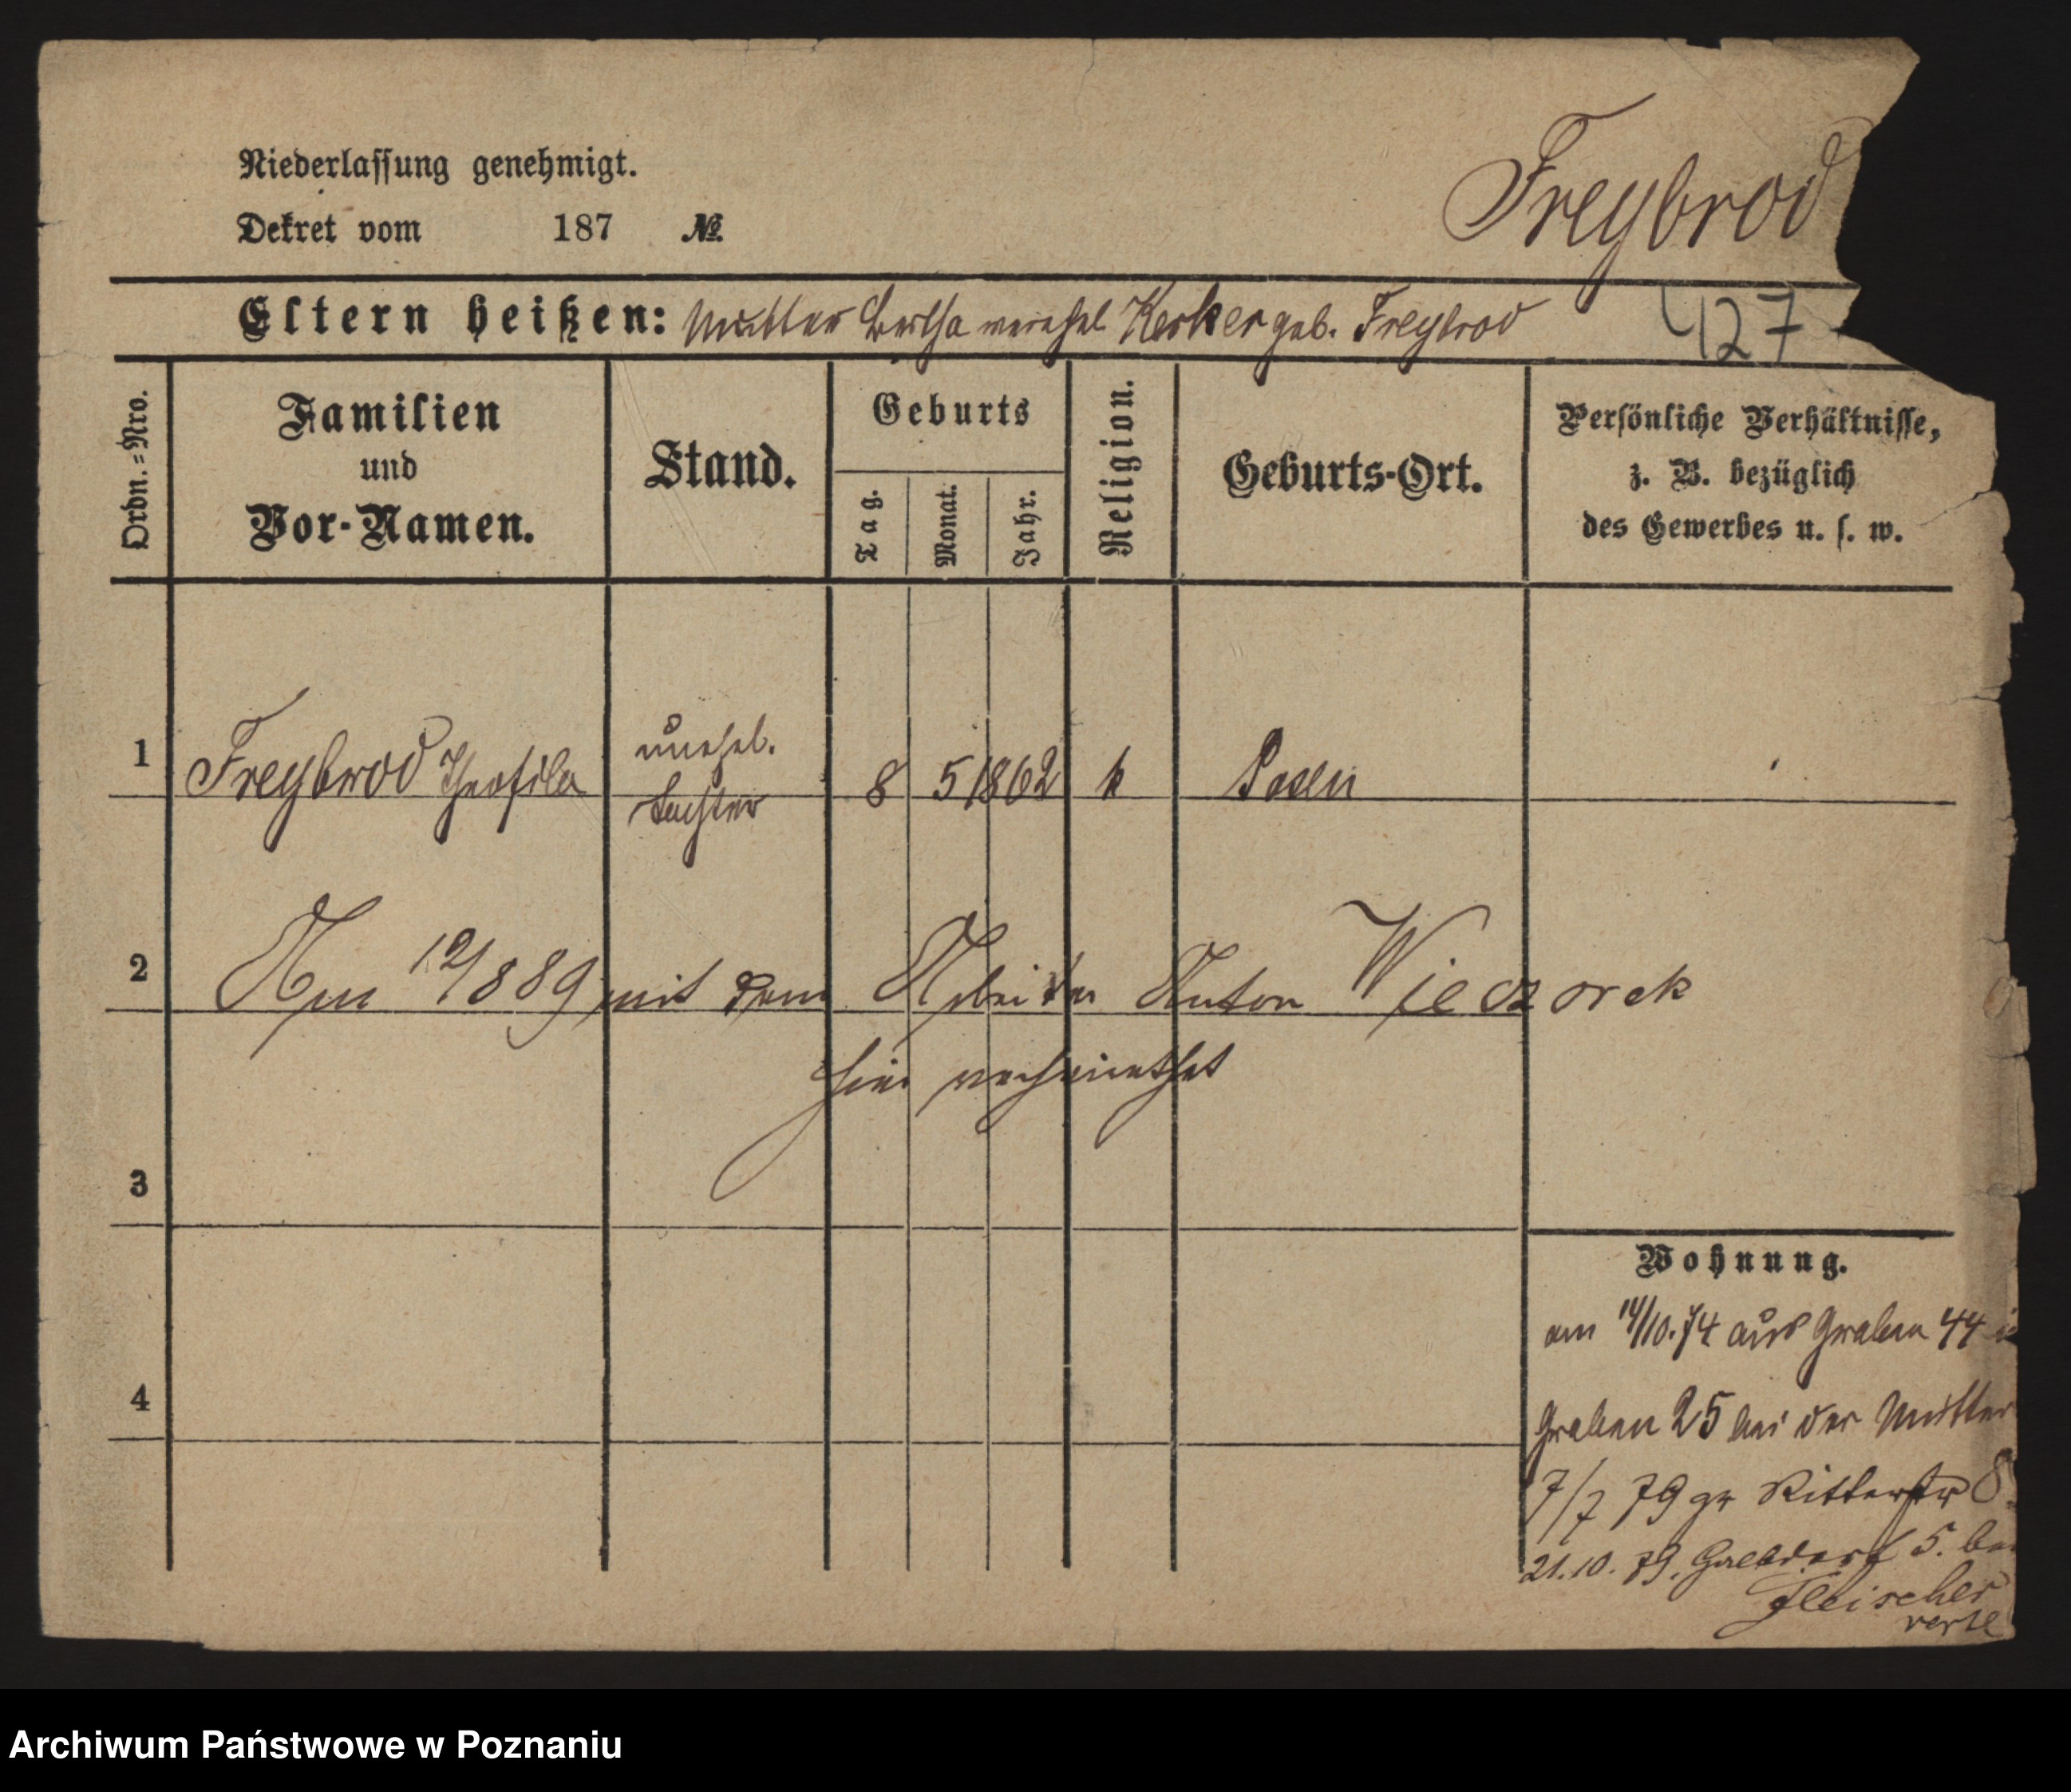 Niederlassung genehmigt.
Dekret vom 187 №
Freybrod
427
Eltern heißen: Mutter Bertha verehel Kerker geb. Freybrod
Ordn.=Nro.
Familien
und
Vor-Namen.
Stand.
Geburts
Tag.
Monat.
Jahr.
Religion.
Geburts-Ort.
Persönliche Verhältnisse,
z. B. bezüglich
des Gewerbes u. s. w.
1 Freybrod Theofila unehel. Tochter 8 5 1862 k Posen
2 Am 12/8 89 mit dem Arbeiter Anton Wieczorek
hier verheirathet
3
4
Wohnung.
am 14/10. 74 aus Graben 44
Graben 25 bei der Mutter
7/7 79 gr Ritterstr 8
21.10. 79. 5.
Fleischer
verte
Archiwum Państwowe w Poznaniu